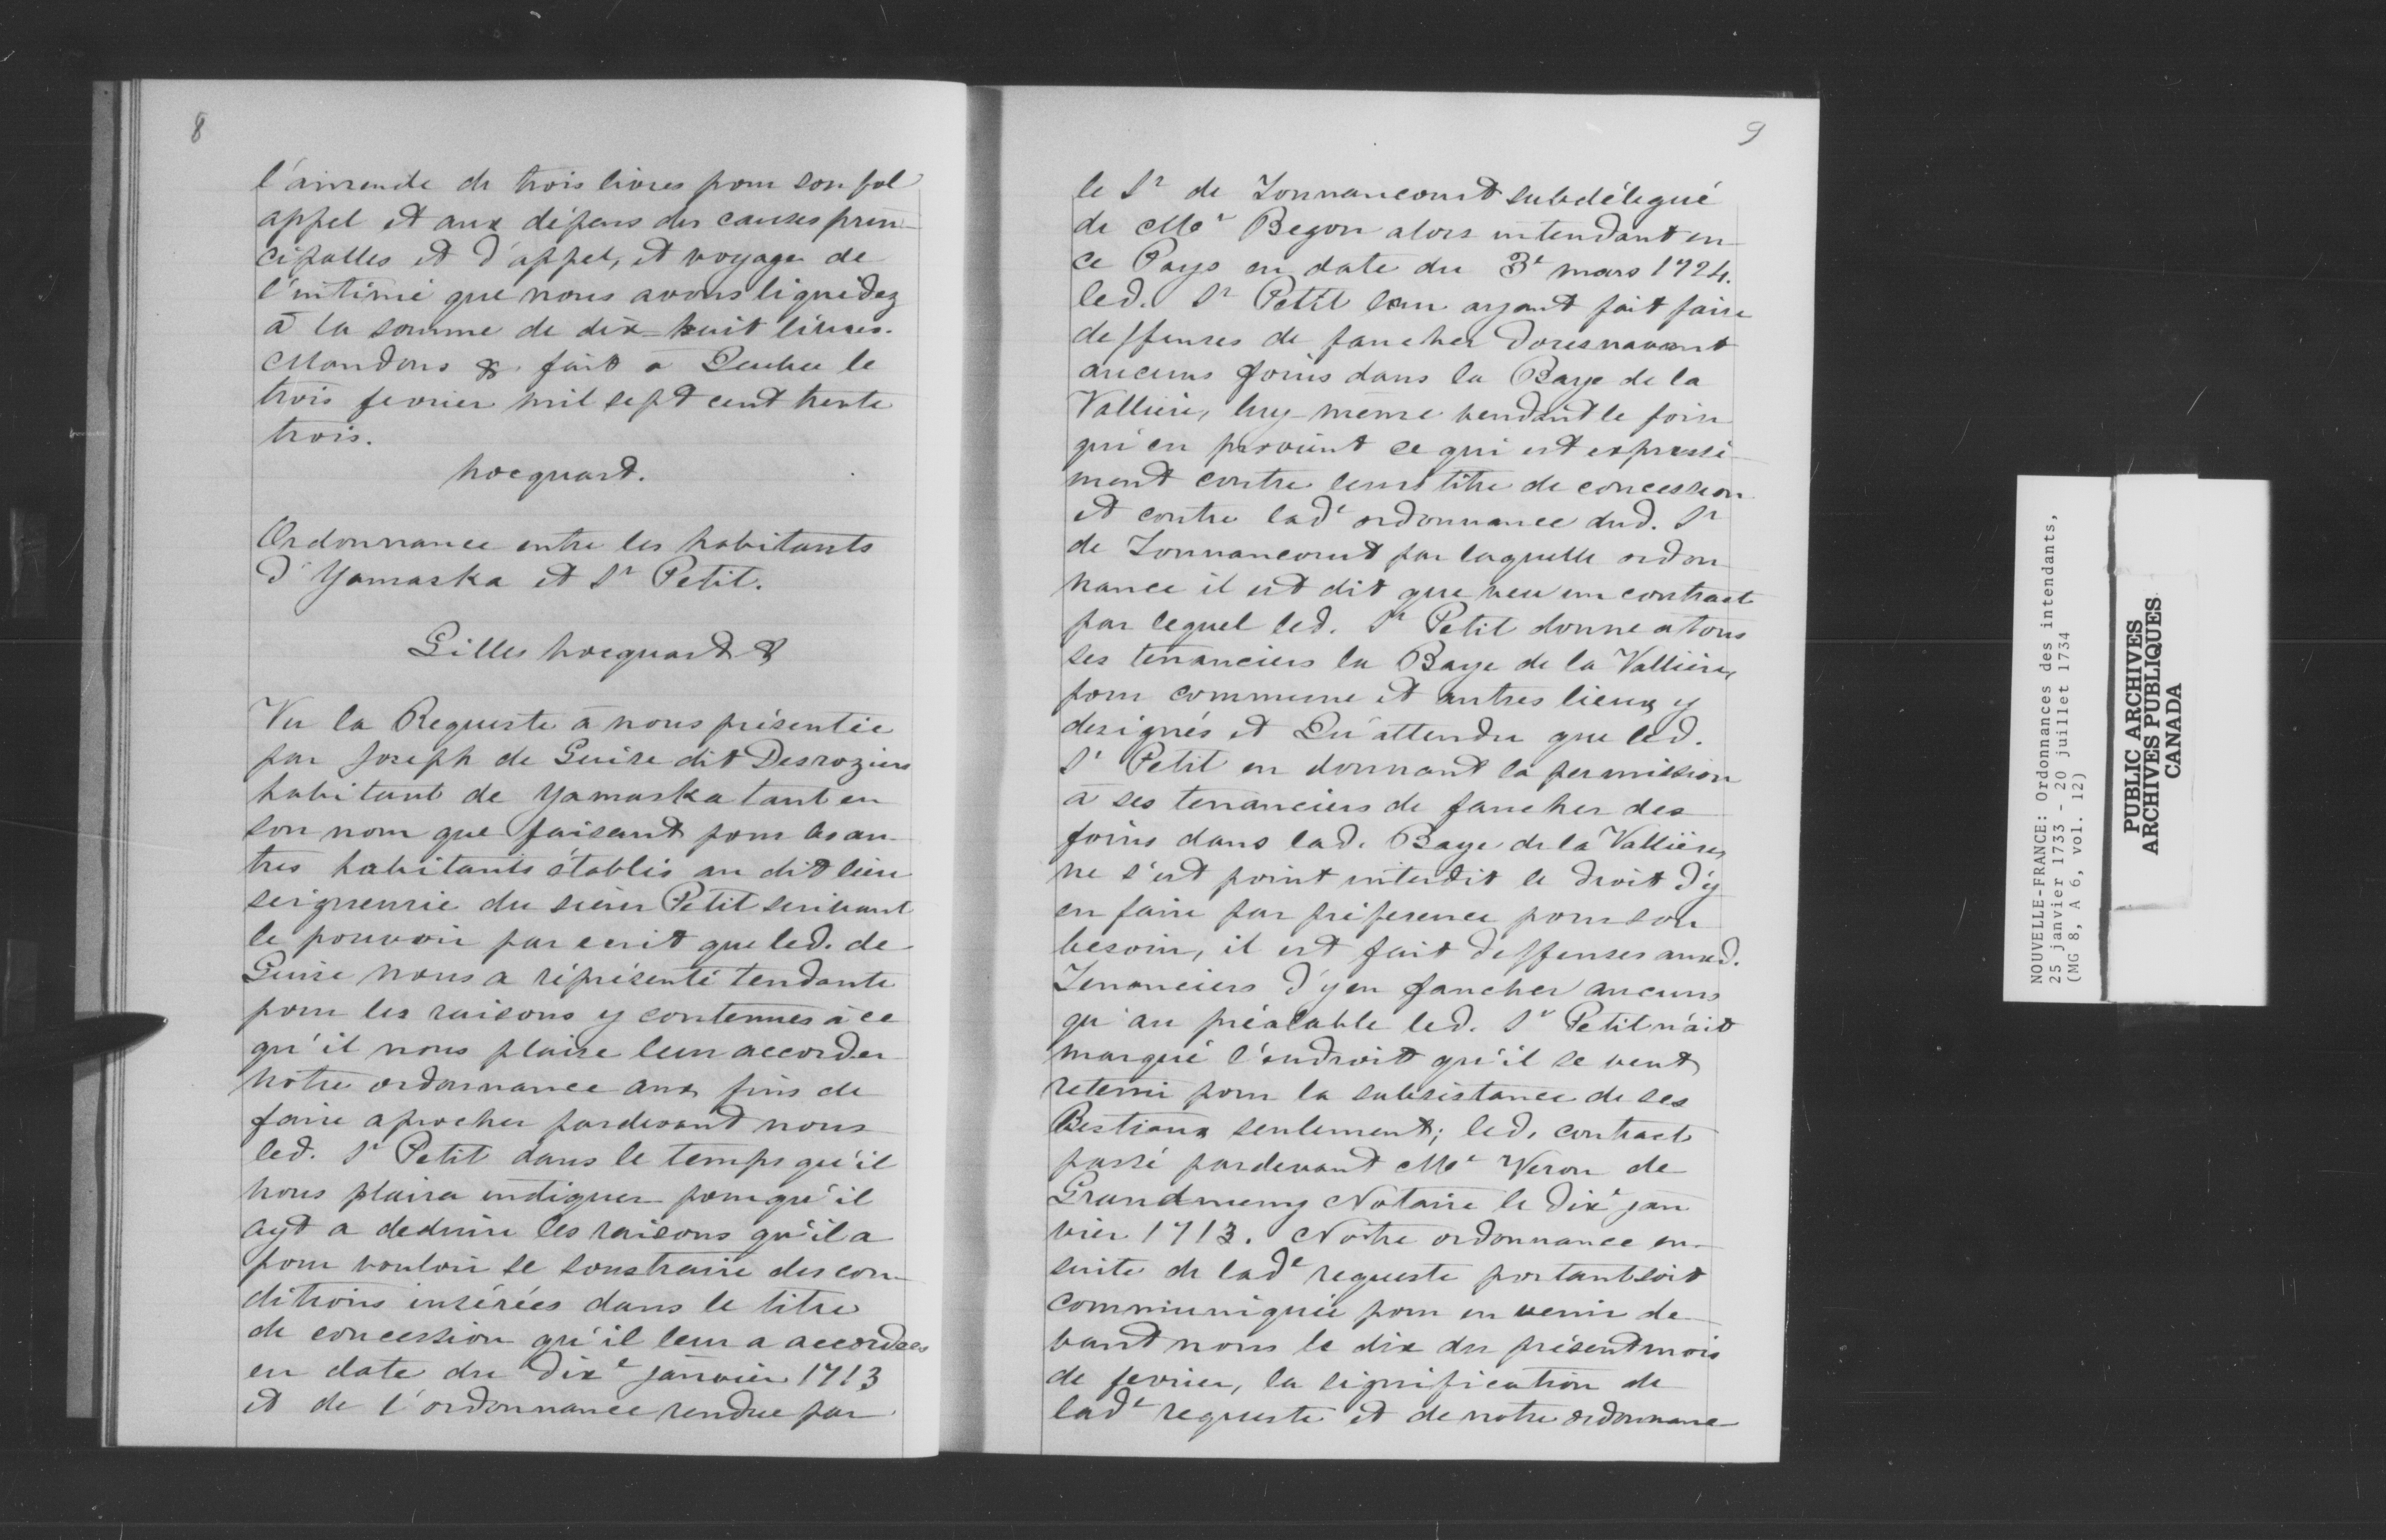 8
l'amende de trois livres pour son fol
appel et aux dépens des causes prin-
cipalles et d'appel, et voyage de
l'intimé que nous avons liquidez
à la somme de dix-huit livres.
Mandons &. fait à Quebec le
trois fevrier mil sept cent trente
trois.
hocquart.
Ordonnance entre les habitants
d'Yamaska et Sr Petit.
Gilles hocquart &
Vu la Requeste à nous présentée
par Joseph de Guire dit Desroziers
habitant de Yamaska tant en
son nom que faisant pour les au-
tres habitants établis au dit lieu
seigneurie du sieur Petit suivant
le pouvoir par ecrit que led. de
Guire nous a réprésenté tendante
pour les raisons y contenues à ce
qu'il nous plaise leur accorder
notre ordonnance aux fins de
faire aprocher pardevant nous
led. Sr Petit dans le temps qu'il
nous plaira indiquer pour qu'il
ayt a deduire les raisons qu'il a
pour vouloir se soustraire des con-
ditions insérées dans le titre
de concession qu'il leur a accordées
en date du dixe janvier 1713
et de l'ordonnance rendue par
9
le Sr de Tonnancourt subdélegué
de Mr Begon alors intendant en
ce Pays en date du 3e mars 1724.
led. Sr Petit leur ayant fait faire
deffenses de faucher doresnavant
aucuns foins dans la Baye de la
Valliere, luy-même vendant le foin
qui en provient ce qui est expressé-
ment contre leurs titre de concession
et contre lade ordonnance dud. Sr
de Tonnancourt par laquelle ordon
nance il est dit que veu un contract
par lequel led. Sr Petit donne a tous
ses tenanciers la Baye de la Vallieres
pour commune et autres lieux y
designés et Qu'attendu que led.
Sr Petit en donnant la permission
à ses tenanciers de faucher des
foins dans lad. Baye de la Vallieres
ne s'est point interdit le droit d'y
en faire par préference pour son
besoin, il est fait deffenses auxd.
Tenanciers d'y en faucher aucuns
qu'au préalable led. Sr Petit n'ait
marqué l'endroit qu'il se veut
retenir pour la subsistance de ses
Bestiaux seulement; led. contract
passé pardevant Me Veron de
Grandmeny Notaire le dixe jan
vier 1713. Notre ordonnance en-
suite de lade requeste portant soit
communiquée pour en venir de-
vant nous le dix du présent mois
de fevrier, la signification de
lade requeste et de notre ordonnance
NOUVELLE-FRANCE: Ordonnances des intendants,
25 janvier 1733 - 20 juillet 1734
(MG 8, A 6, vol. 12)
PUBLIC ARCHIVES
ARCHIVES PUBLIQUES
CANADA